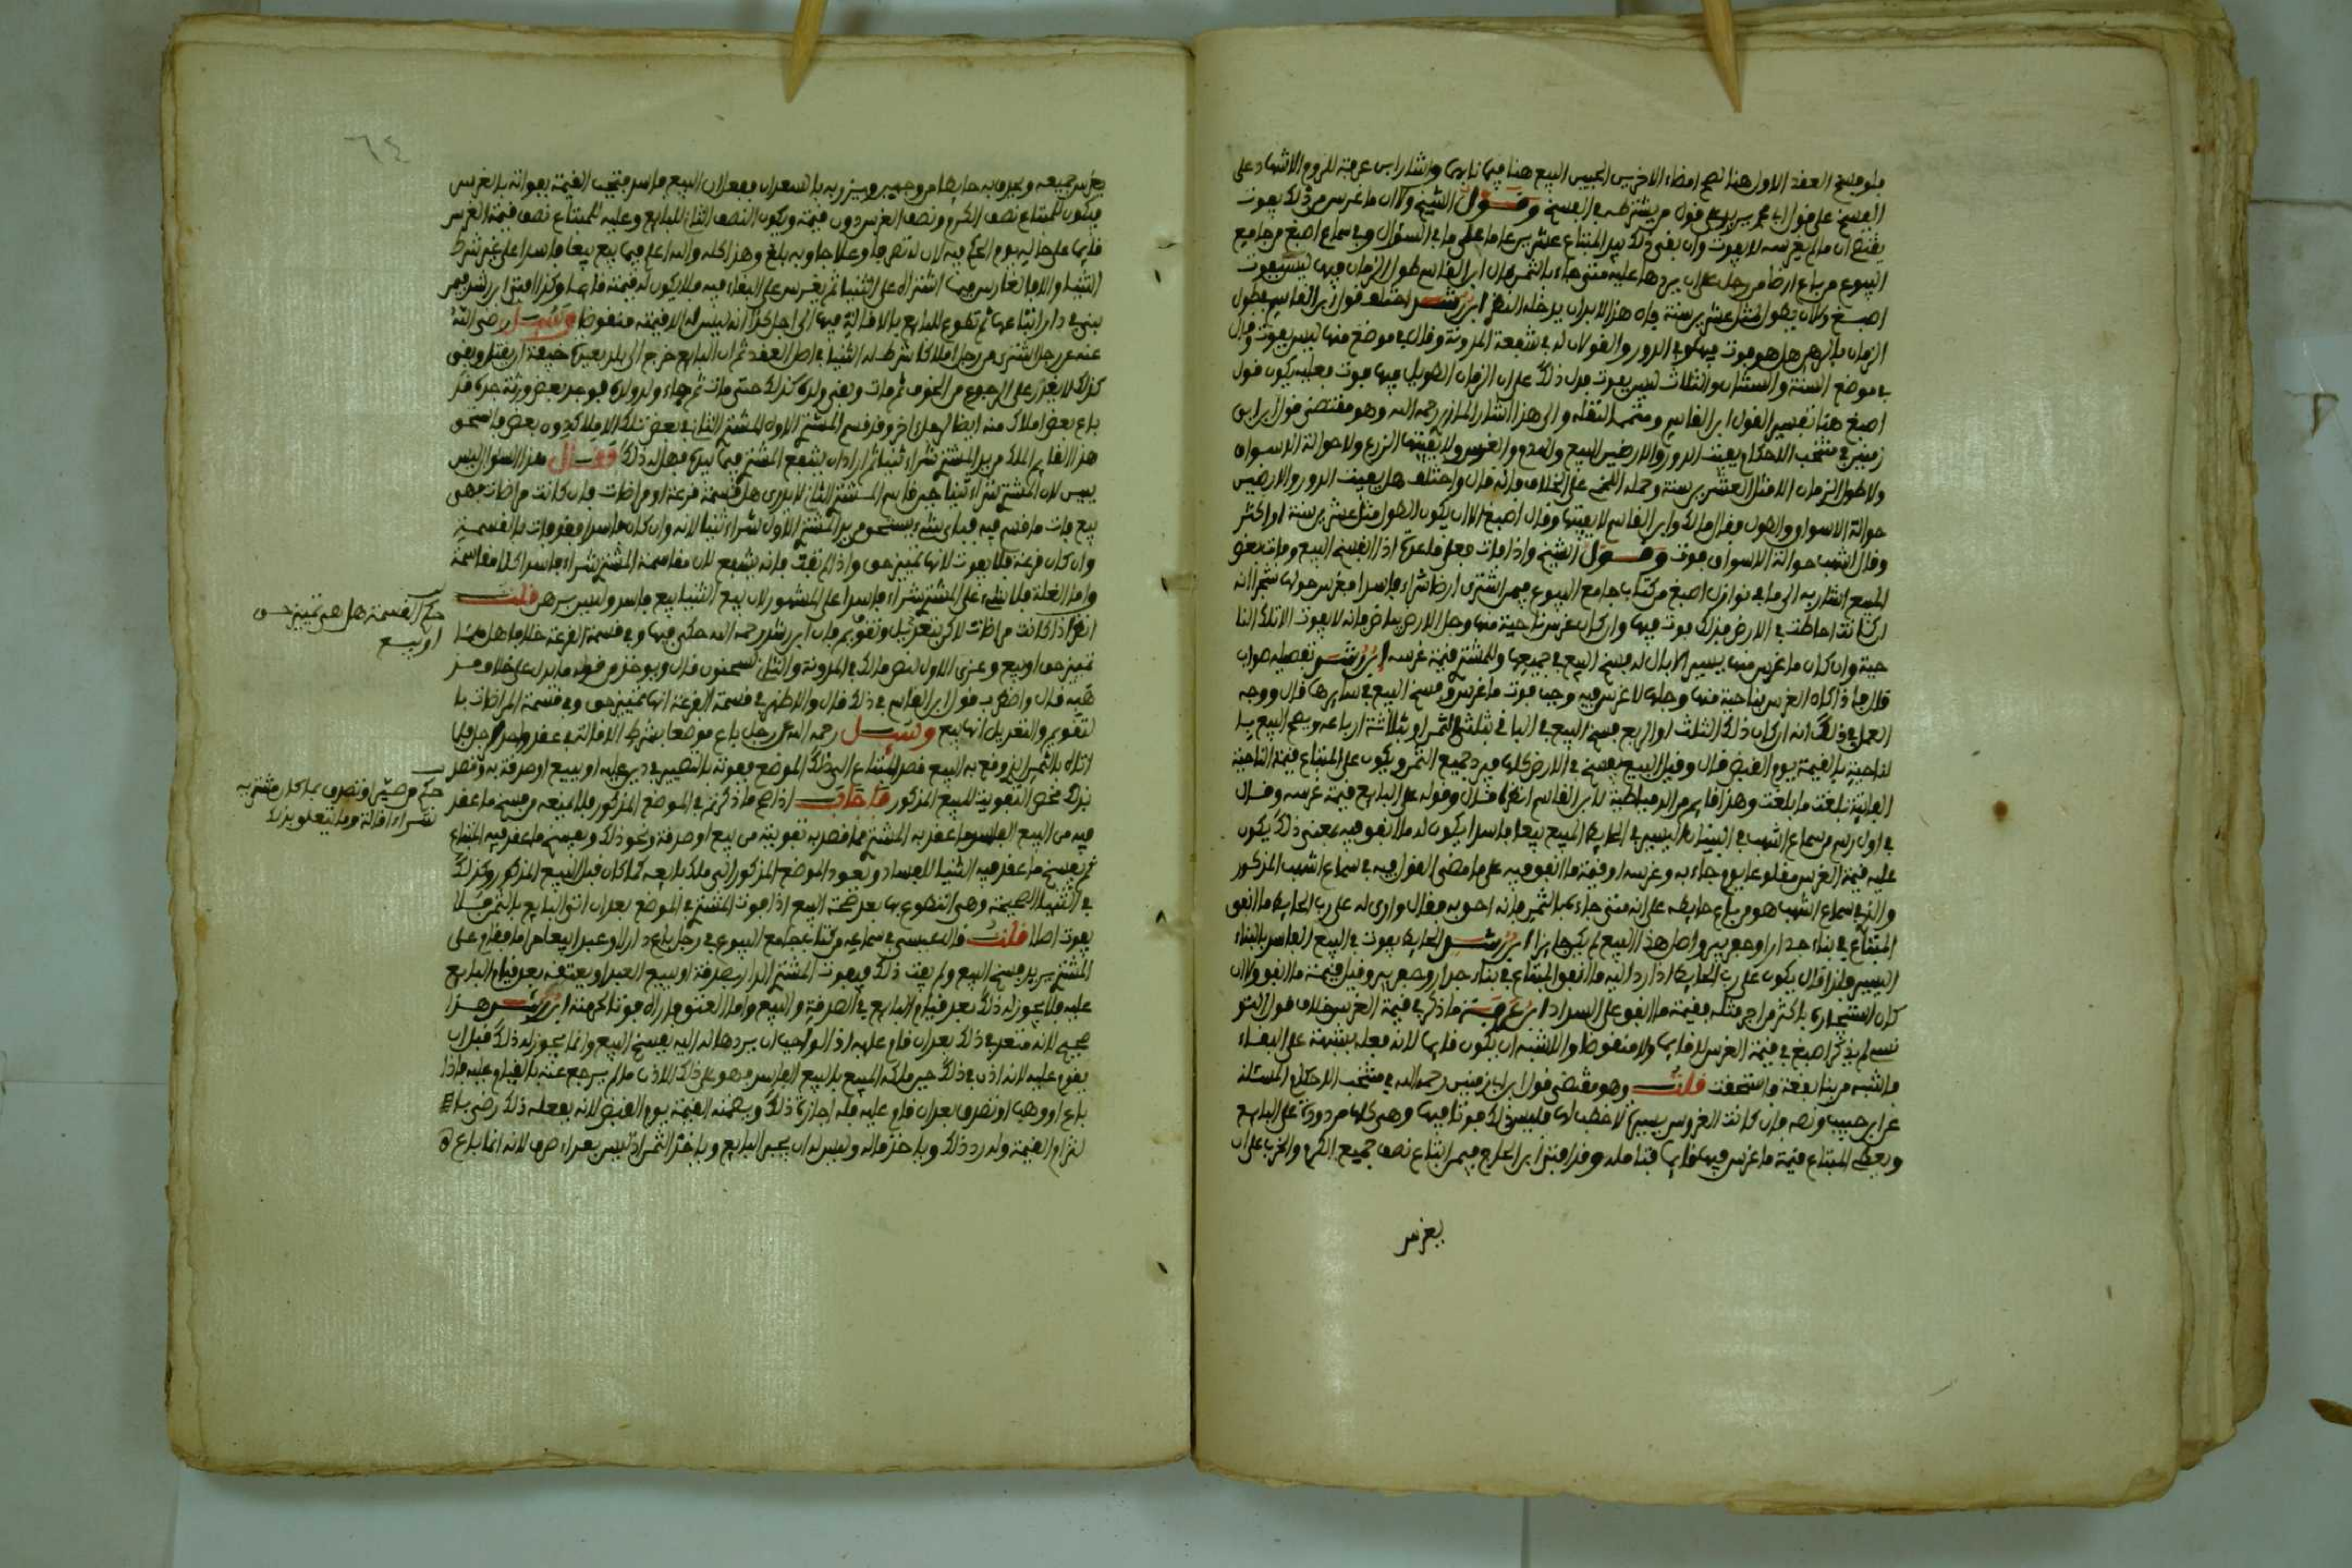 فلو فسخ العقد الاول هنا لصح امضاء الاخر بين البيع هنا فيها واشار ابن عرفة للزوم الاشهاد على
الفسخ على قول من يشترطه في الفسخ وقول الشيخ وكان ما غرس من ذلك يفوت
يقتضي ان ما لم يغرسه لا يفوت وان بقي ذلك بيد المبتاع عشرين عاما على ما في السؤال وفي سماع اصبغ من جامع
البيوع من باع ارضا من رجل على ان يردها عليه متى جاءه بالثمن فان ابن القاسم طول الزمان فيها ليس بفوت
اصبغ الا ان يطول مثل عشرين سنة فان هذا لا بد ان يدخله التغير ابن رشد اختلف قول ابن القاسم بطول
الزمان هل هو فوت في الدور والقولان له في شفعة المدونة وقال في موضع منها ليس بفوت وقال
في موضع السنة والسنتان والثلاث ليس بفوت فدل ذلك على ان الزمان الطويل فيها فوت فعليه يكون قول
اصبغ هذا تفسير لقول ابن القاسم والى هذا اشار المازري رحمه الله وهو مقتضى قول ابن ابي
زمنين في منتخب الاحكام يفيت الدور والارضين البيع والهدم والغرس ولا يفيتها الزرع ولا حوالة الاسواق
ولا طول الزمان الا مثل العشرين سنة وحمله اللخمي على الخلاف فانه قال واختلف هل يفيت الدور والارضين
حوالة الاسواق والطول فقال مالك وابن القاسم لا يفيتها وقال اصبغ الا ان يكون الطول مثل عشرين سنة او اكثر
وقال اشهب حوالة الاسواق فوت وقول الشيخ واذا فات فعلى قاعدة اذا انفسخ البيع وفات بعض
المبيع اشار به الى ما في نوازل اصبغ من كتاب جامع البيوع فيمن اشترى ارضا شراء فاسدا فغرس حولها شجرا انه
ان كانت احاطت في الارض فذلك فوت فيها وان كان غرس ناحية منها وجل الارض بياض فانه لا يفوت الا تلك النا
حية وان كان ما غرس منها يسير الا بال له فسخ البيع في جميعها وللمشتري قيمة غرسه ابن رشد تفصيله صواب
قال فاذا كان الغرس بناحية منها وجلها لا غرس فيه وجب فوت ما غرس وفسخ البيع في سايرها قال ووجه
العمل في ذلك انه ان كان ذلك الثلث او الربع فسخ البيع في الباقي بثلثي الثمن او بثلاثة ارباعه ويصح البيع با
لناحية بالقيمة يوم القبض قال وقيل البيع يفسخ في الارض كلها فيرد جميع الثمن ويكون على المبتاع قيمة الناحية
الفايتة بلغت ما بلغت وهذا قايم من الدمياطية لابن القاسم انظره قال وقوله على البايع قيمة غرسه وقال
في اول رسم من سماع اشهب في البنيان اليسير في الحايط المبيع بيعا فاسدا يكون له ما انفق فيه بمعنى ذلك يكون
عليه قيمة الغرس مقلوعا يوم جاء به وغرسه او قيمة ما انفق فيه على ما مضى القول فيه في سماع اشهب المذكور
والذي في سماع اشهب هو من باع حايطه على انه متى جاءه بالثمن فانه احق به فقال وارى له على رب الحايط ما انفق
المبتاع في بناء جدار او حفر بير واصل هذا البيع لم يكن جايزا ابن رشد الحايط يفوت في البيع الفاسد بالبناء
اليسير فلذا قال يكون على رب الحايط اذا رد اليه ما انفق المبتاع في بناء جدار وحفر بير وقيل قيمة ما انفق ولان
كان استيجاره باكثر من اجر مثله فقيمة ما انفق على السداد ابن عرفة ما ذكره في قيمة الغرس خلاف قول التو
نسي لم يذكر اصبغ في قيمة الغرس لا قايما ولا منقوضا والاشبه ان يكون قايما لانه فعله بشبهة على البقاء
فاشبه من بنا بقعة فاستحقت قلت وهو مقتضى قول ابن ابي زمنين رحمه الله في منتخب الاحكام المسئلة
عن ابن حبيب ونصه فان كانت الغروس يسيرة لا خطب لها فليس ذلك فوتا فيها وهي كلها مردودة على البايع
ويعطى المبتاع قيمة ما غرس فيها قايما فتامله وقد افتى ابن الحاج فيمن ابتاع نصف جميع الكرم والخرب على ان
يغرس
٦٤
يغرس جميعه بالسعدان فعلى ان البيع فاسد فتجب القيمة بفواته بالغرس
فيكون للمبتاع نصف الكرم ونصف الغرس دون قيمة ويكون النصف الثاني للبايع وعليه للمبتاع نصف قيمة الغرس
قايما على حاله يوم الحكم فيه وهذا كله والله اعلم فيما بيع بيعا فاسدا على غير شرط
الثنيا والا فالغارس فيما اشتراه على الثنيا لم يغرس على البقاء فيه فلا يكون له قيمته قايما وكذا افتى ابن رشد فيمن
بنى في دار ابتاعها ثم تطوع للبايع بالاقالة فيها الى اجل كذا انه ليس له الا قيمته منقوضا وسئل رضي الله
عنه عن رجل اشترى من رجل املاكا شرط له الثنيا في اصل العقد ثم ان البايع خرج الى بلد بعيدة خيفة ان يقتل وبقي
كذلك لا يقدر على الرجوع من الخوف ثم مات وبقي ولده كذلك حتى مات ثم جاء ولد ولده فوجد بعض ورثة جده قد
باع بعض املاك منه ايضا لرجل اخر وقد قسم المشتري الاول المشتري الثاني في بعض تلك الاملاك دون بعض فاستحق
هذا القايم الملك من يد المشتري شراء ثنيا ثم اراد ان يشفع المشتري فيما بيده فهل له ذلك فقال هذا السؤال ليس
يبين لان المشتري شراء ثنيا حين قاسم المشتري الثاني لا يدرى هل قسمة قرعة او مراضات فان كانت مراضات فهي
بيع فات ما قسم فيه فباي شيء يستحق من يد المشتري الاول شراء ثنيا لانه وان كان فاسدا فقد فات بالقسمة
وان كان قرعة فلا يفوت لانها تمييز حق واذا لم تفت فانه يشفع لان مقاسمة المشتري شراء فاسدا كلا مقاسمة
واما الغلة فلا شيء على المشتري شراء فاسدا على المشهور لان بيع الثنيا بيع فاسد وليس برهن قلت
انظر اذا كانت مراضات لكن بتعديل وتقويم فان ابن رشد رحمه الله حكى فيها وفي قسمة القرعة خلافا هل هما
تمييز حق او بيع وعزى الاول لنص مالك في المدونة والثاني لسحنون قال ويوخذ من قوله ما يدل على خلاف مذ
هبه قال واضطرب قول ابن القاسم في ذلك قال والاظهر في قسمة القرعة انها تمييز حق وفي قسمة المراضات با
لتقويم والتعديل انها بيع وسئل رحمه الله عن رجل باع موضعا بشرط الاقالة في عقد واحد
اتاه بالثمن الذي وقع به البيع فصير المبتاع الى ذلك الموضع يفوته بالتصيير في دين عليه او ببيع او صدقة به وقصد
بذلك محض التفويت للبيع المذكور فاجاب اذا صح ما ذكرتم في الموضع المذكور فلا يمنعه من فسخ ما عقد
فيه من البيع الفاسد ما عقد به المشتري مما قصد به تفويته من بيع او صدقة ونحو ذلك ويفسخ ما عقد فيه المبتاع
ثم يفسخ ما عقد فيه الثنيا للفساد ويعود الموضع المذكور الى ملك بايعه كما كان قبل البيع المذكور وكذلك
في الثنيا الصحيحة وهي التطوع بها بعد صحة البيع اذا فوت المشتري في الموضع بعد ان اتى البايع بالثمن فلا
يفوت اصلا قلت قال عيسى في سماعه من كتاب جامع البيوع في رجل باع دارا او عبدا بيعا حراما فقام على
المشتري يريد فسخ البيع ولم يفت ذلك فيفوت المشتري الدار بصدقة او يبيع العبد او يعتقه بعد قيام البايع
عليه فلا يجوز له ذلك بعد قيام البايع في الصدقة والبيع واما العتق فاراه فوتا لحرمته ابن رشد هذا
صحيح لانه متعد في ذلك بعد ان قام عليه اذ الواجب ان يردها اليه بفسخ البيع وانما يجوز له ذلك قبل ان
يقوم عليه لانه اذن في ذلك حين ملكه المبيع بالبيع الفاسد فهو على ذلك الاذن ما لم يرجع عنه بالقيام عليه فاذا
باع او وهب او تصرف بعد ان قام عليه فله اجازة ذلك ويضمنه القيمة يوم القبض لانه بفعله ذلك رضي با
لتزام القيمة وله رد ذلك وياخذ ماله وليس له ان يجيز البايع وياخذ الثمن اذ ليس بعداء صرف لانه انما باع
حكم القسمة هل هي تمييز حق
او بيع
حكم من صير او تصرف بما كل مشتريه
بشراء اقالة وما يتعلق بذلك